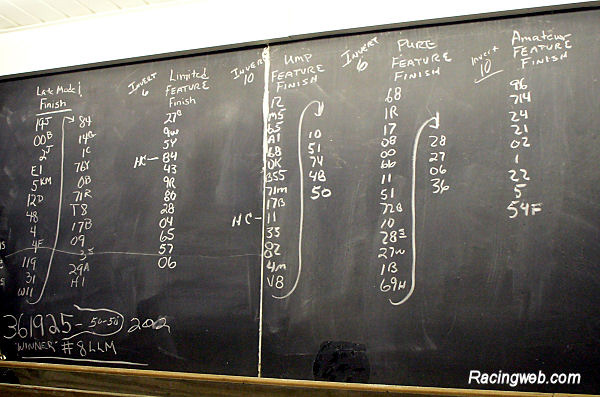 Late Model
Finish
14J
00B
2J
E1
5KM
12D
48
4
4F
119
31
W11
84
14B
1C
76Y
0B
71R
T8
17B
09
29A
H1
INVERT
6
Limited
FEATURE
Finish
27B
9W
5Y
HC- 84
43
9R
80
28
04
65
57
06
INVERT
10
UMP
FEATURE
FINISH
12
M5
65
A1
0K
B55
71M
17B
HC- 11
33
02
4M
V8
10
51
74
48
50
INVERT
6
PURE
FEATURE
FINISH
68
1R
17
08
00
66
11
51
72B
10
27W
1B
69H
28
27
06
36
Invert
10
Amateur
FEATURE
FINISH
96
714
24
21
02
1
22
5
54F
361925-50-50 202
"WINNER" #8LLM
Racingweb.com